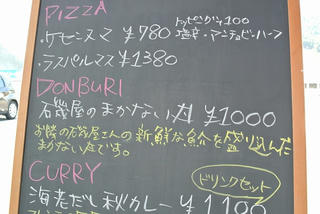 PIZZA
・ケセンヌマ ¥780 トッピング各¥100
・ラスパルマス ¥1380 塩辛・アンチョビ・ハーブ
DONBURI
石畿屋のまかない丼 ¥1000
お隣の石畿屋さんの新鮮な魚介を盛り込んだ
まかない丼です。
CURRY ドリンクセット
海老だし秋カレー ¥1100